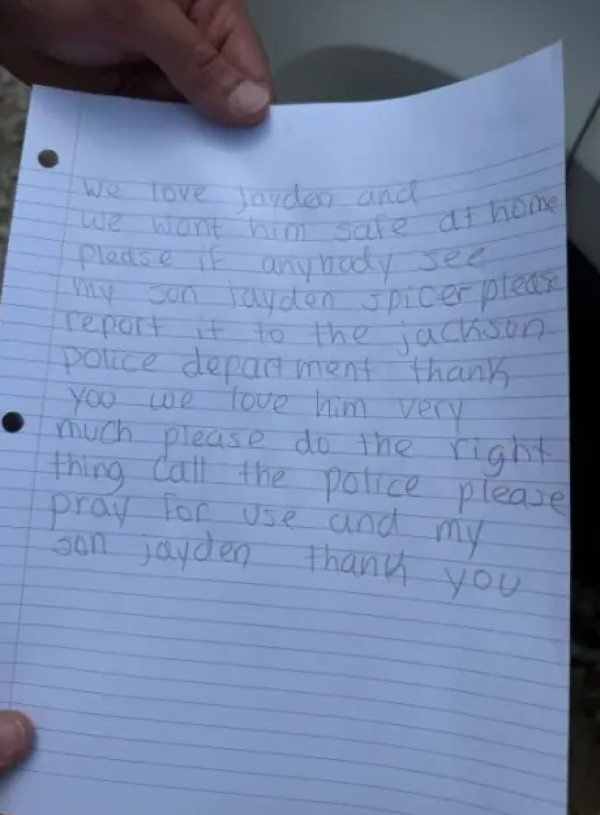 We love Jayden and
we want him safe at home
please if anybady see
my son jayden spicer please
report it to the jackson
police department thank
yoo we love him very
much please do the right
thing call the police please
pray for use and my
son jayden thank you